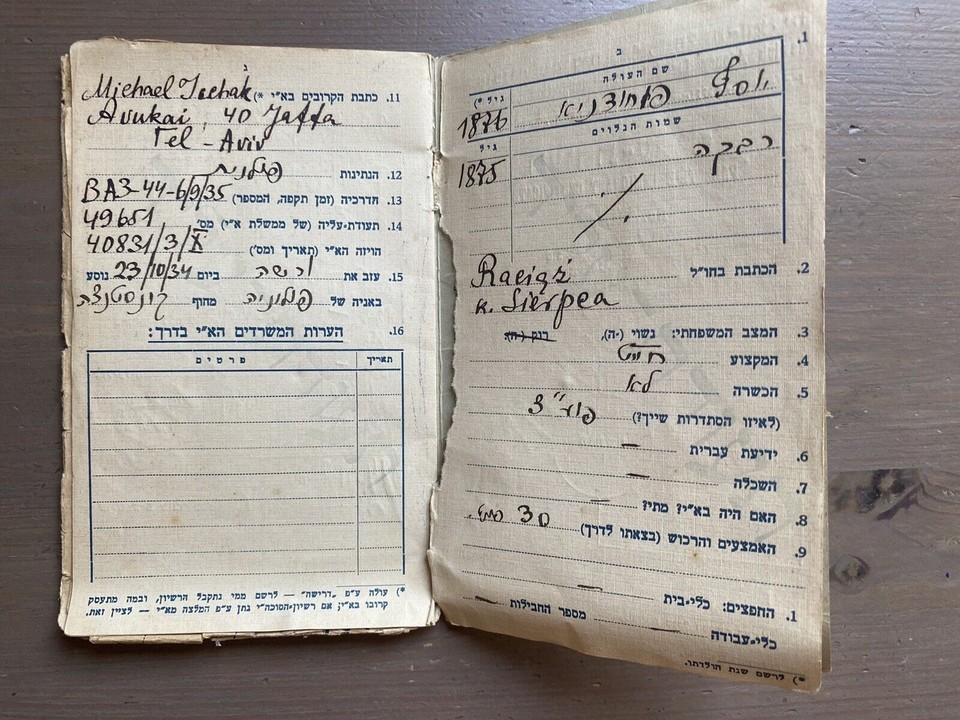 ב
.1
שם העולה
גיל *)
יוסף
1876
שמות הנלוים
גיל
רבקה
1875
.2 הכתבת בחו"ל Raciąż
k. Sierpca
.3 המצב המשפחתי: נשוי (-ה), רוק (-ה).
.4 המקצוע חייט
.5 הכשרה לא
(לאיזו הסתדרות שייך?) פוע"צ
.6 ידיעת עברית —
.7 השכלה —
.8 האם היה בא"י? מתי? —
.9 האמצעים והרכוש (בצאתו לדרך) 30
.1 החפצים: כלי-בית —
מספר החבילות —
כלי-עבודה —
*) לרשם שנת הולדתו.
ג
.11 כתבת הקרובים בא"י *) Michael Icchak
Avukai, 40 Jaffa
Tel - Aviv
.12 הנתינות פולנית
.13 הדרכיה (זמן תקפה, המספר) BA3-44-6/9/35
.14 תעודת-עליה (של ממשלת א"י) מס' 49651
הויזה הא"י (תאריך ומס') 40831/3/X
.15 עזב את ורשה ביום 23/10/34 נוסע
באניה של פולניה מחוף קונסטנצה
.16 הערות המשרדים הא"י בדרך:
תאריך פרטים
*) עולה ע"פ „דרישה" — לרשם ממי נתקבל הרשיון, ובמה מתעסק
קרובו בא"י; אם רשיון-הסוכה"י נתן ע"פ המלצה מא"י — לציין זאת.